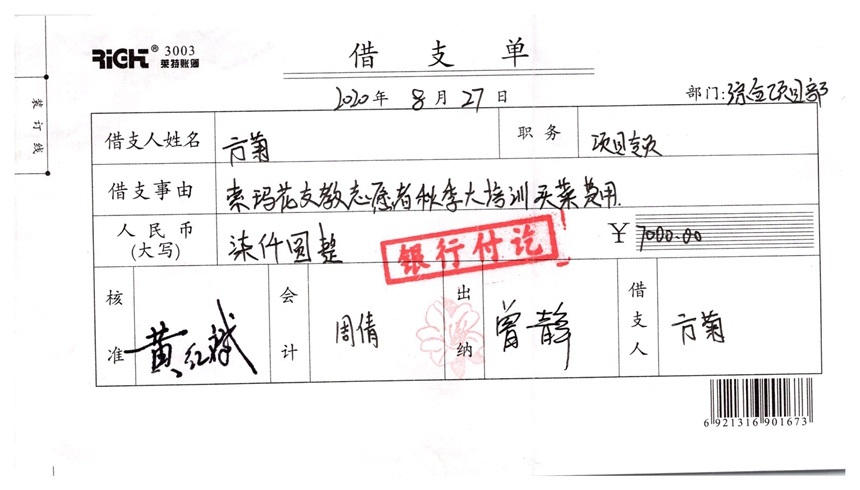 RiGHT® 3003
莱特账簿
借 支 单
2020年 8月 27日
部门:综合项目部
装订线
借支人姓名 方菊 职务 项目专员
借支事由 索玛花支教志愿者秋季大培训买菜费用.
人民币(大写) 柒仟圆整 ¥ 7000.00
银行付讫
核准 黄红斌 会计 周倩 出纳 曾静 借支人 方菊
6 921316 901673